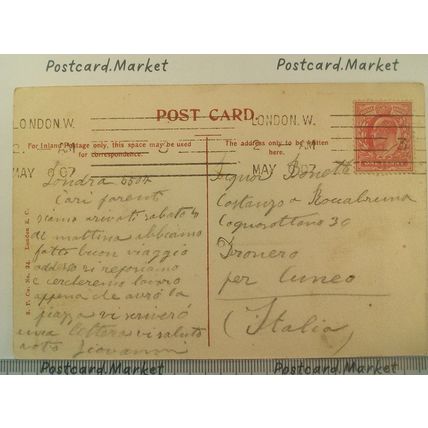 Postcard.Market
Postcard.Market
POST CARD.
LONDON.W.
LONDON.W.
MAY 07
MAY 07
For Inland Postage only, this space may be used
for correspondence.
The address only to be written
here.
Londra
Cari parenti
siamo arivati sabato
di mattina abbiamo
fatto buon viaggio
adesso si reposiamo
e cercheremo lavoro
appena che avrò la
piazza vi scrivero
una lettera vi saluto
Giovanni
Signor Donetto
Costanzo a Roccabruna
30
Dronero
per Cuneo
(Italia)
London E.C.
Postcard.Market
Postcard.Market